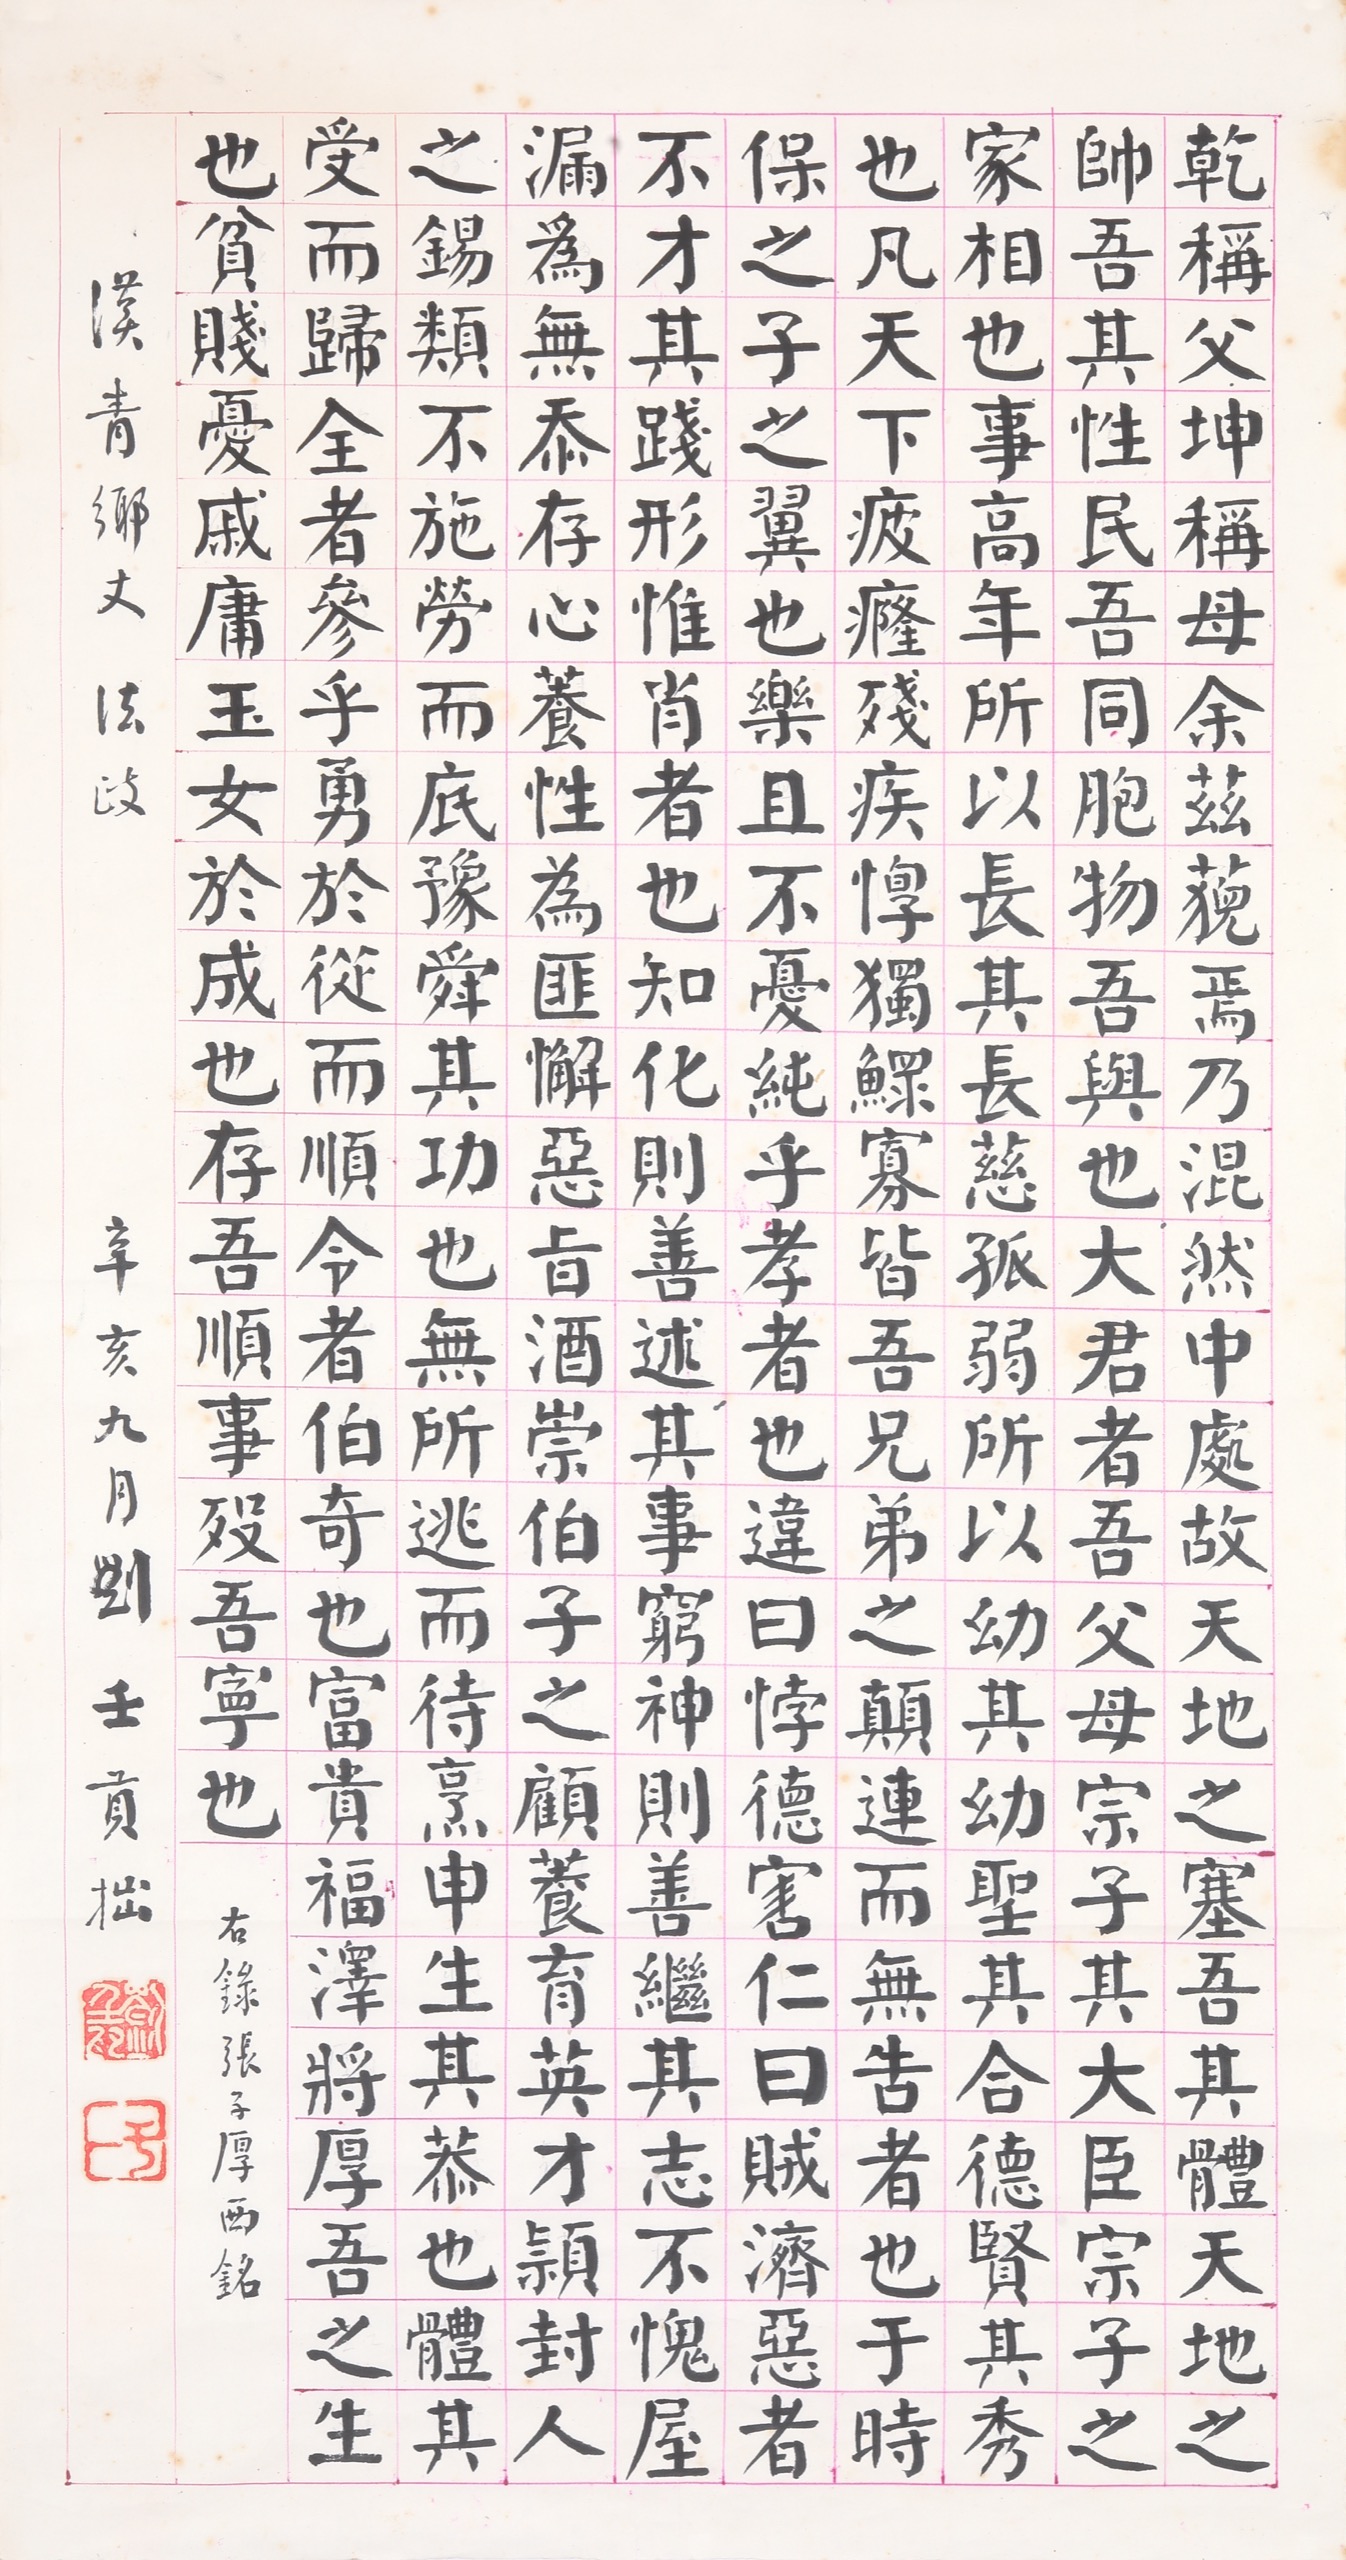 乾稱父坤稱母余茲藐焉乃混然中處故天地之塞吾其體天地之
帥吾其性民吾同胞物吾與也大君者吾父母宗子其大臣宗子之
家相也事高年所以長其長慈孤弱所以幼其幼聖其合德賢其秀
也凡天下疲癃殘疾惸獨鰥寡皆吾兄弟之顛連而無告者也于時
保之子之翼也樂且不憂純乎孝者也違曰悖德害仁曰賊濟惡者
不才其踐形惟肖者也知化則善述其事窮神則善繼其志不愧屋
漏為無忝存心養性為匪懈惡旨酒崇伯子之顧養育英才潁封人
之錫類不施勞而底豫舜其功也無所逃而待烹申生其恭也體其
受而歸全者參乎勇於從而順令者伯奇也富貴福澤將厚吾之生
也貧賤憂戚庸玉女於成也存吾順事歿吾寧也
右錄張子厚西銘
漢青鄉丈 法政
辛亥九月劉壬貢拙